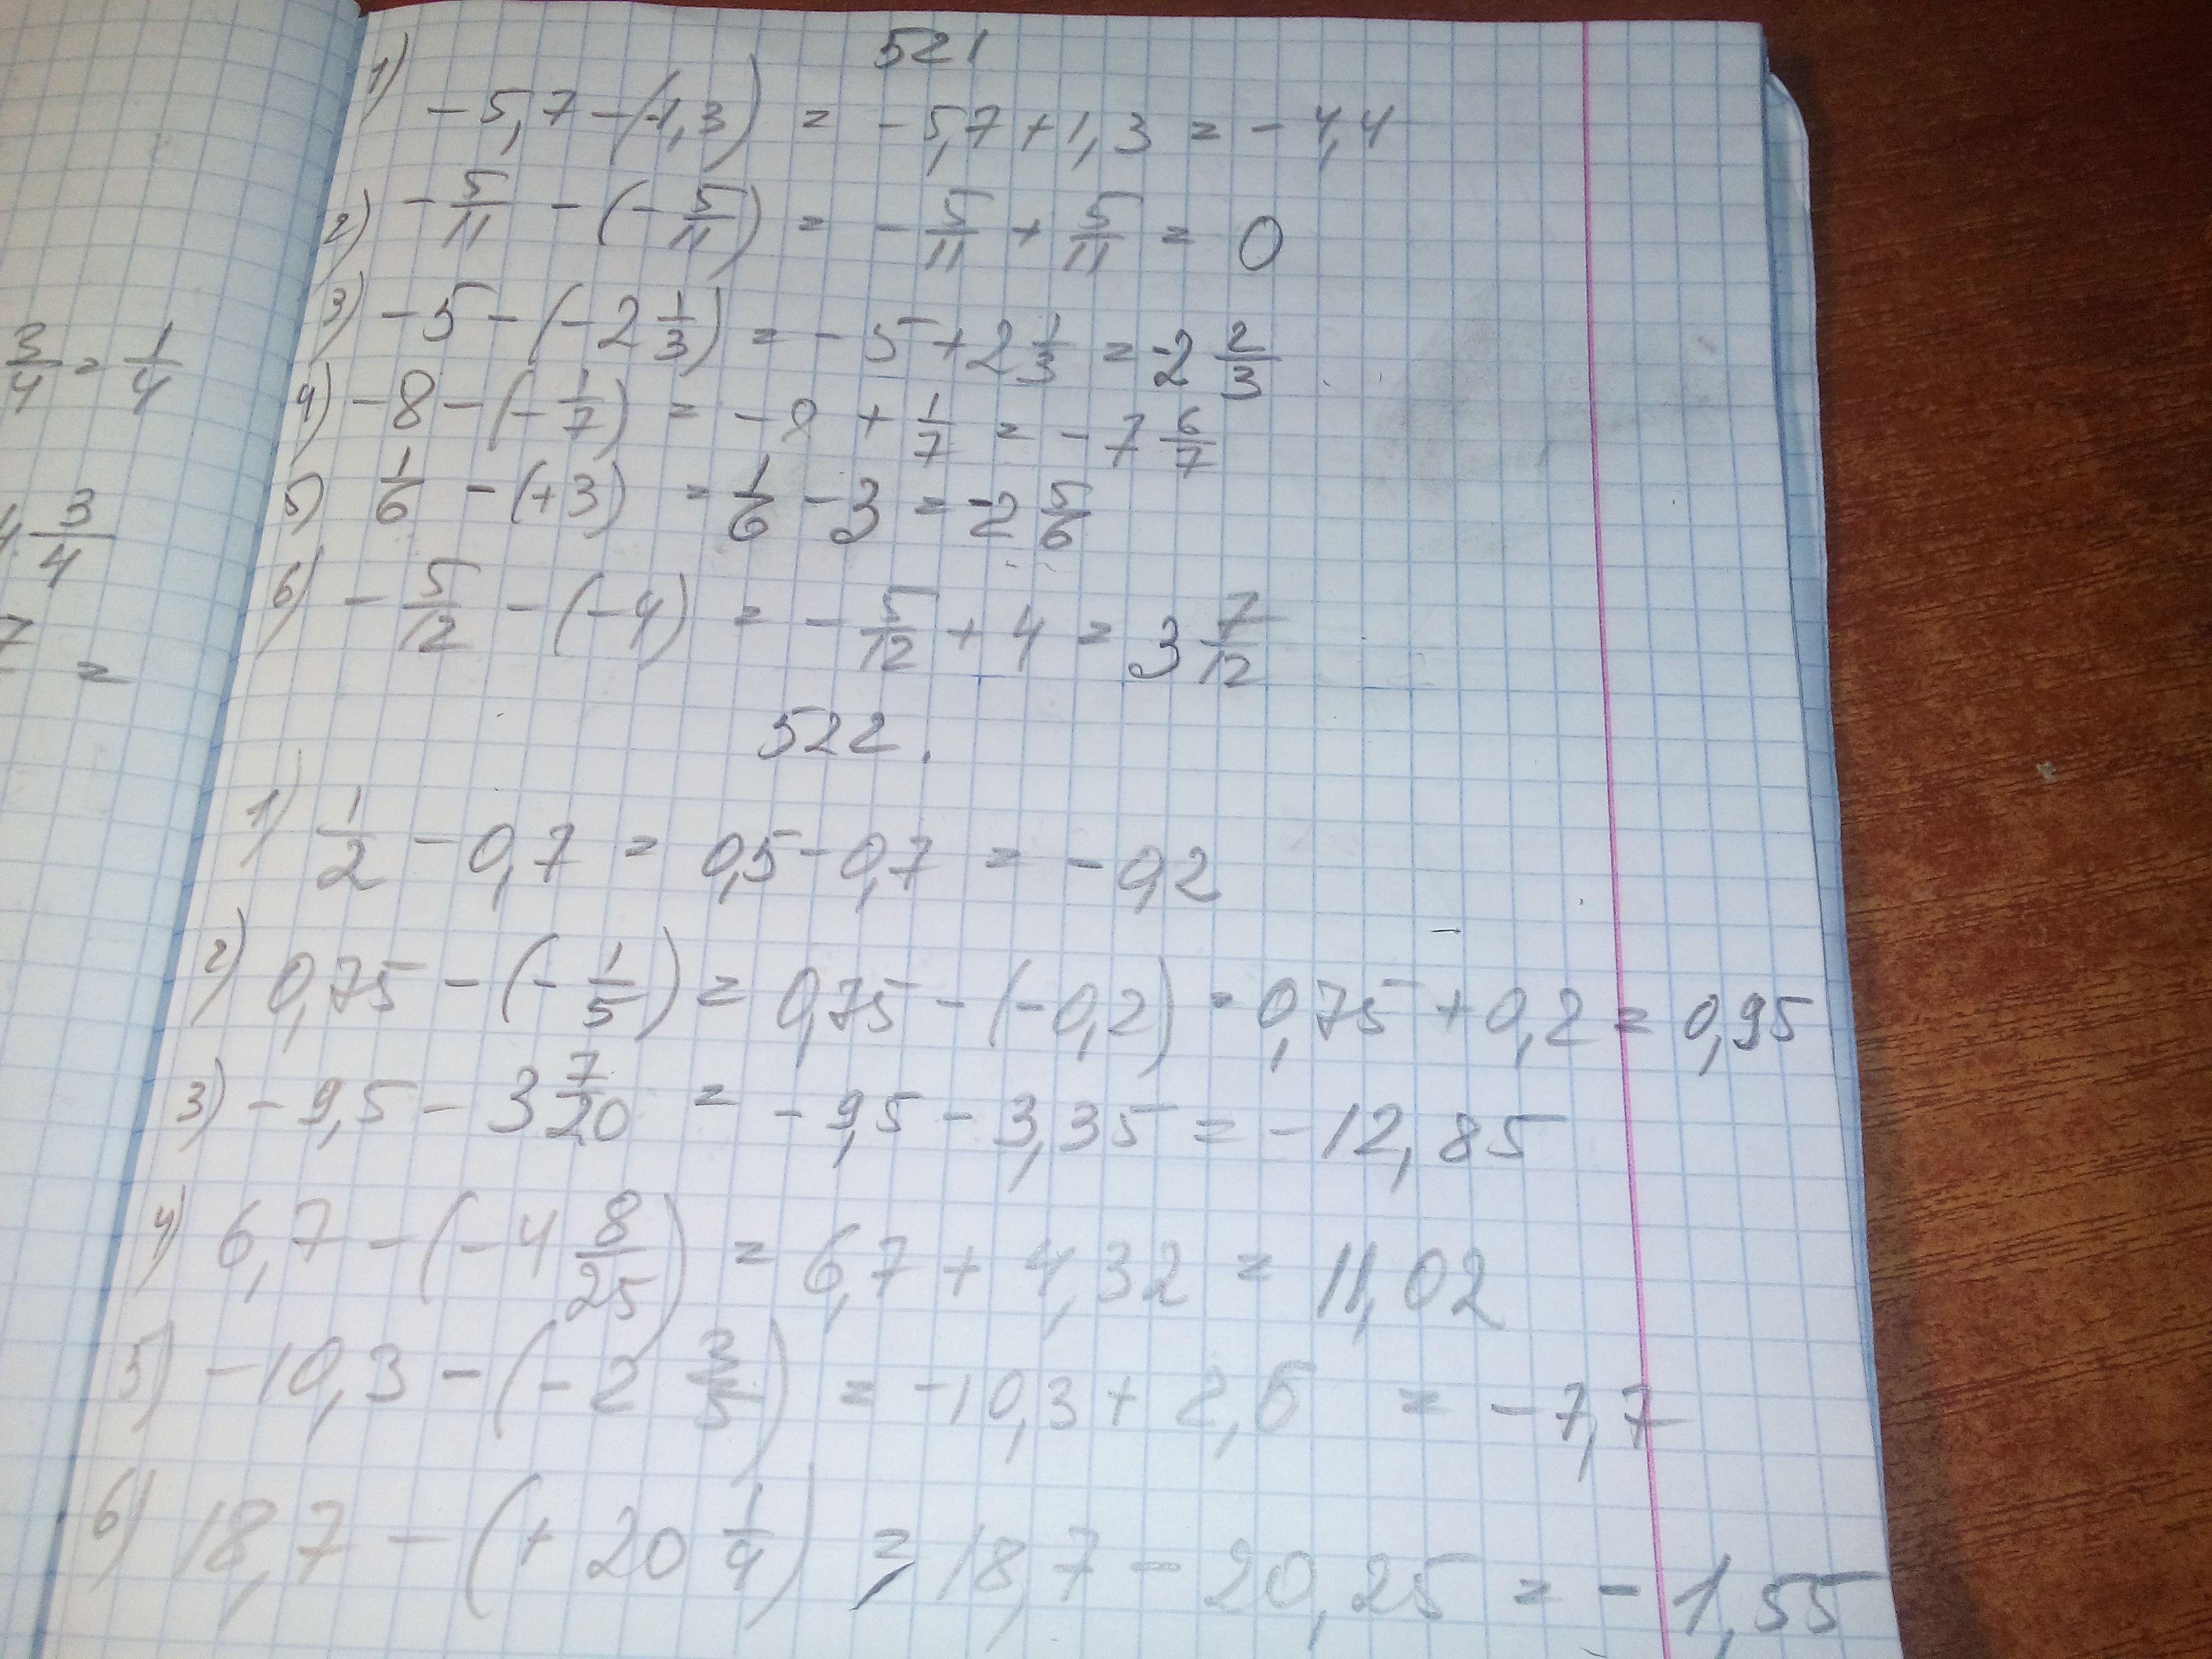 3/4 = 1/4
3/4
7 =
521
1) -5,7 -(-1,3) = -5,7 + 1,3 = -4,4
2) -5/11 - (-5/11) = -5/11 + 5/11 = 0
3) -5 - (-2 1/3) = -5 + 2 1/3 = -2 2/3
4) -8 - (-1/7) = -8 + 1/7 = -7 6/7
5) 1/6 - (+3) = 1/6 - 3 = -2 5/6
6) -5/12 - (-4) = -5/12 + 4 = 3 7/12
522.
1) 1/2 - 0,7 = 0,5 - 0,7 = -0,2
2) 0,75 - (-1/5) = 0,75 - (-0,2) = 0,75 + 0,2 = 0,95
3) -9,5 - 3 7/20 = -9,5 - 3,35 = -12,85
4) 6,7 - (-4 8/25) = 6,7 + 4,32 = 11,02
5) -10,3 - (-2 3/5) = -10,3 + 2,6 = -7,7
6) 18,7 - (+20 1/4) = 18,7 - 20,25 = -1,55